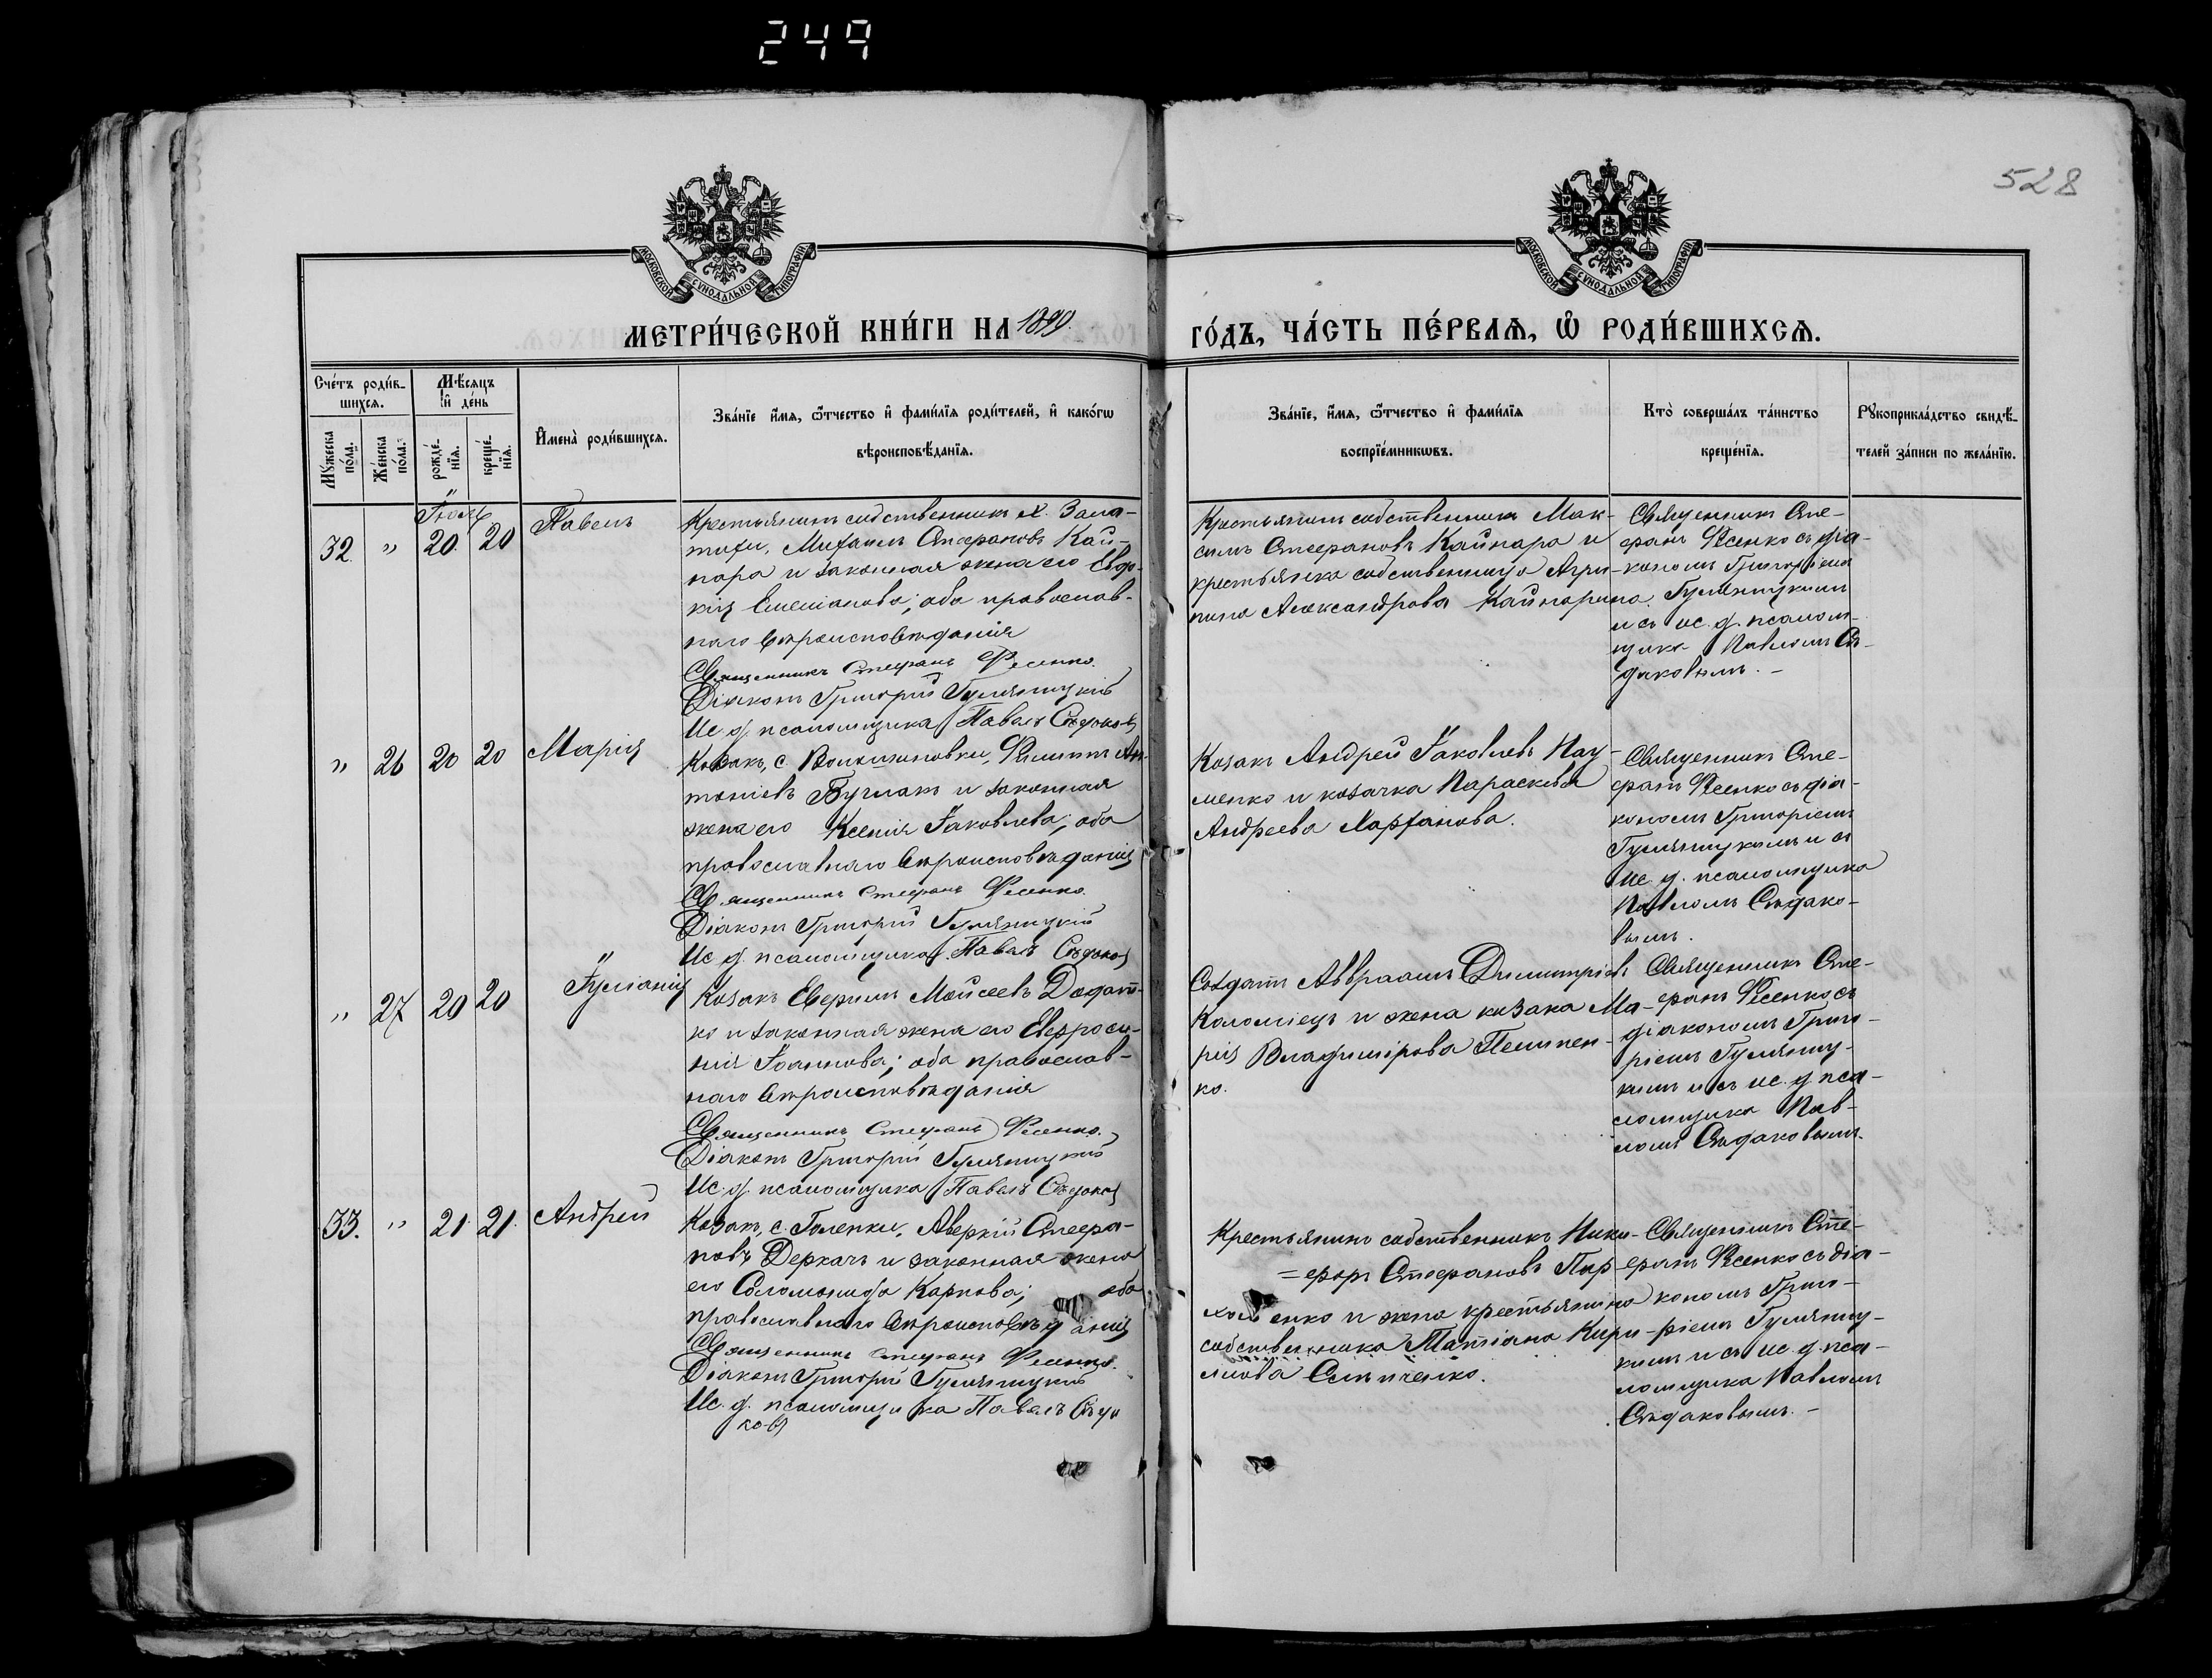 249
528
МОСКОВСКОЙ СѴНОДАЛЬНОЙ ТИПОГРАФІИ
МОСКОВСКОЙ СѴНОДАЛЬНОЙ ТИПОГРАФІИ
МЕТРИ́ЧЕСКОЙ КНИ́ГИ НА 1899.
ГО́ДЪ, ЧА́СТЬ ПЕ́РВАѦ, Ѽ РОДИ́ВШИХСѦ.
Сче́тъ роди́в-
шихсѧ.
Мѣ́сяцъ
и҆ де́нь
Мꙋ́жеска
по́ла.
Же́нска
по́ла.
рожде́-
нїѧ.
креще́-
нїѧ.
И҆мена̀ роди́вшихсѧ.
Зва́нїе и҆́мѧ, ѻ҆́тчество и҆ фами́лїѧ роди́телей, и҆ како́гѡ
вѣроисповѣ́данїѧ.
Зва́нїе, и҆́мѧ, ѻ҆́тчество и҆ фами́лїѧ
воспрїе́мникѡвъ.
Кто̀ соверша́лъ та́инство
креще́нїѧ.
Рꙋкоприкла́дство свидѣ́-
телей за́писи по жела́нїю.
Іюль
32. " 20. 20 Павелъ
Крестьянинъ собственникъ х.
Михаилъ Стефановъ Кай-
нара и законная жена его Евдо-
кія ; оба православ-
наго вѣроисповѣданія
Священникъ Стефанъ Фесенко.
Діаконъ Григорій Гуляницкій
Ис. д. псаломщика Павелъ Сѣдаковъ
Крестьянинъ собственникъ Мак-
симъ Стефановъ Кайнара и
крестьянка собственница Агри-
пина Александрова Кайнарина.
Священникъ Сте-
фанъ Фесенко съ діа-
кономъ Григоріемъ
Гуляницкимъ
и съ ис. д. псалом-
щика Павломъ Сѣ-
даковымъ. –
" 26 20 20 Марія
Козакъ, с. Волошиновки, Филиппъ Ан-
тоніевъ Бурлакъ и законная
жена его Ксенія Іаковлева; оба
православнаго вѣроисповѣданія
Священникъ Стефанъ Фесенко.
Діаконъ Григорій Гуляницкій
Ис. д. псаломщика Павелъ Сѣдаковъ
Козакъ Андрей Іаковлевъ Нау-
менко и козачка Параскева
Андреева Харланова.
Священникъ Сте-
фанъ Фесенко съ діа-
кономъ Григоріемъ
Гуляницкимъ и съ
ис. д. псаломщика
Павломъ Сѣдако-
вымъ.
" 27 20 20 Іуліанія
Козакъ Моѵсеевъ Додат-
ко и законная жена его Евфроси-
нія Іоаннова; оба православ-
наго вѣроисповѣданія
Священникъ Стефанъ Фесенко.
Діаконъ Григорій Гуляницкій
Ис. д. псаломщика Павелъ Сѣдаковъ
Солдатъ Авраамъ Димитріевъ
Коломіецъ и жена козака Ма-
рія Владимірова Пемпен-
ко.
Священникъ Сте-
фанъ Фесенко съ
діакономъ Григо-
ріемъ Гуляниц-
кимъ и съ ис. д. пса-
ломщика Пав-
ломъ Сѣдаковымъ.
33. " 21. 21. Андрей
Козакъ, с. Голенки, Аверкій Стефа-
новъ Деркачъ и законная жена
его Соломонида Карпова; оба
православнаго вѣроисповѣданія
Священникъ Стефанъ Фесенко.
Діаконъ Григорій Гуляницкій
Ис. д. псаломщика Павелъ Сѣда
ковъ
Крестьянинъ собственникъ Ники-
=форъ Стефановъ Пар-
хоменко и жена крестьянина
собственника Татіана Кири-
лова
Священникъ Сте-
фанъ Фесенко съ діа-
кономъ Григо-
ріемъ Гуляниц-
кимъ и съ ис. д. пса-
ломщика Павломъ
Сѣдаковымъ. –